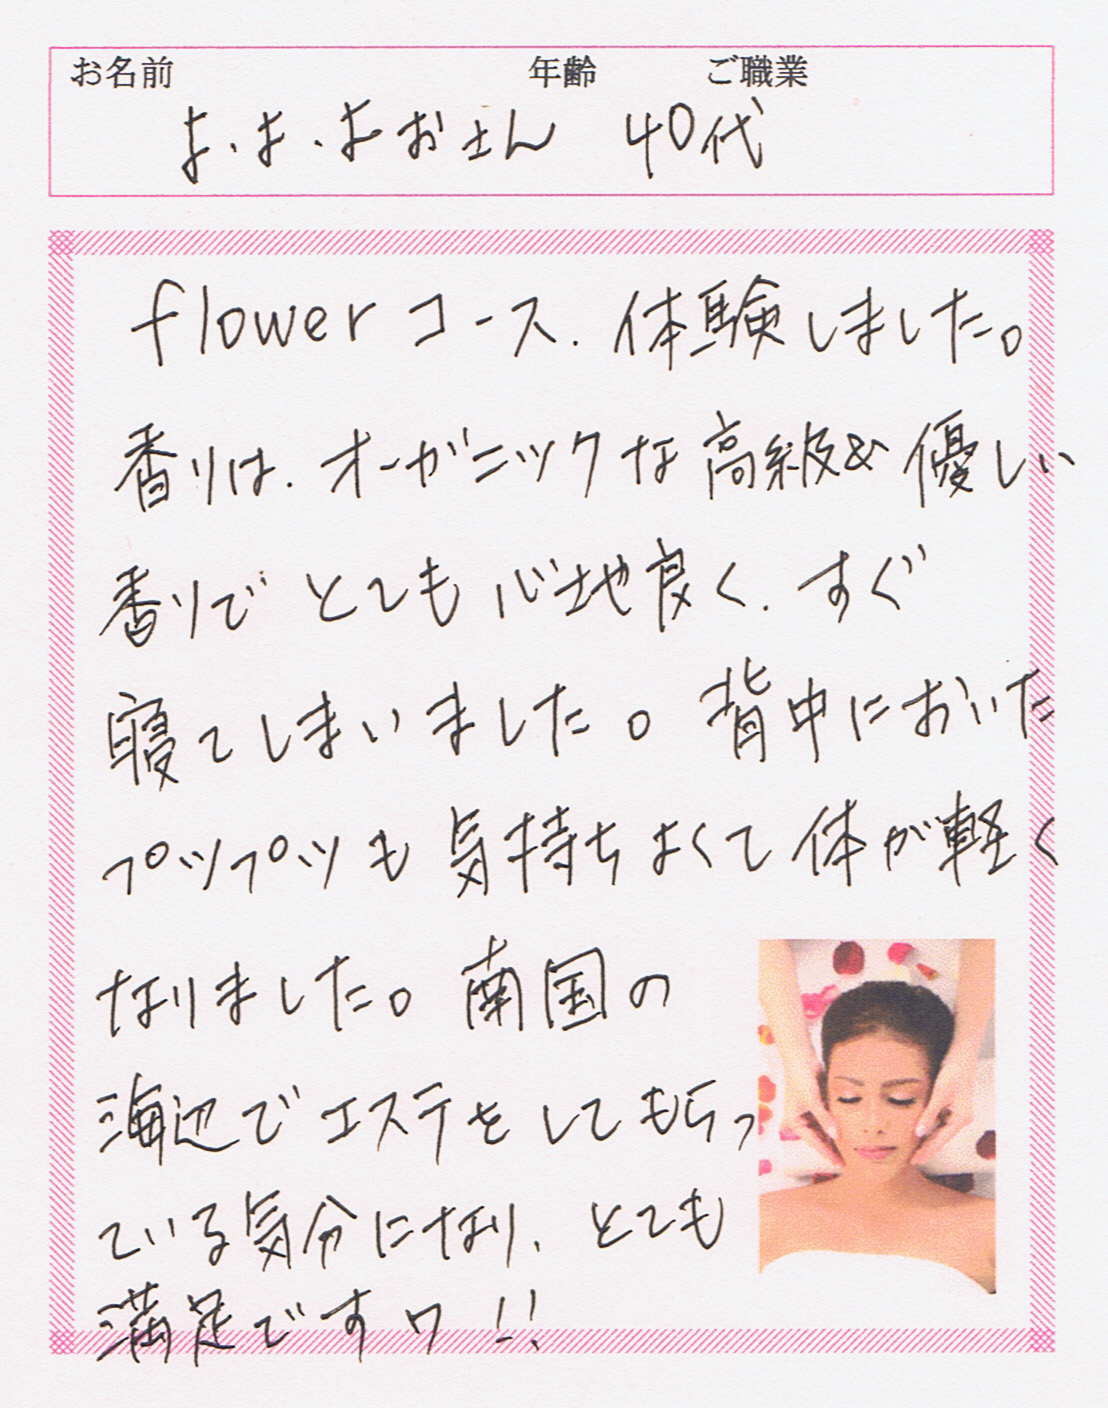 お名前 年齢 ご職業
よ.よ.よおさん 40代
flowerコース.体験しました。
香りは.オーガニックな高級&優しい
香りでとても心地良く.すぐ
寝てしまいました。背中においた
プツプツも気持ちよくて体が軽く
なりました。南国の
海辺でエステをしてもらっ
ている気分になり、とても
満足ですワ!!